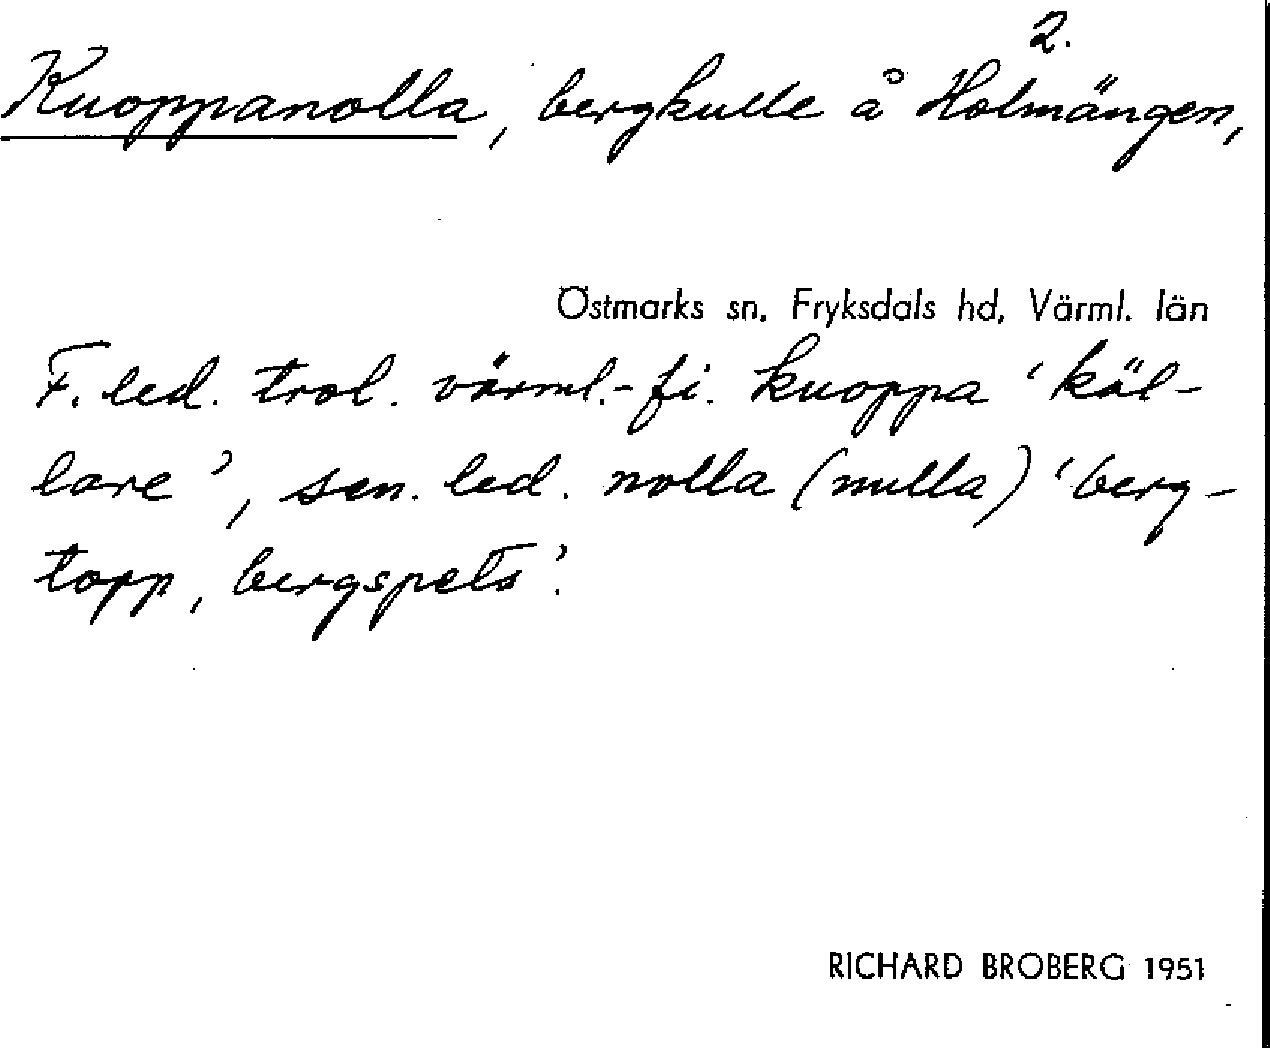 2.
Kuoppanolla, bergkulle å Holmängen,
Östmarks sn, Fryksdals hd, Värml. län
F. led. trol. värml.-fi. kuoppa 'käl-
lare', sen. led. nolla (nulla) 'berg-
topp, bergspets'.
RICHARD BROBERG 1951